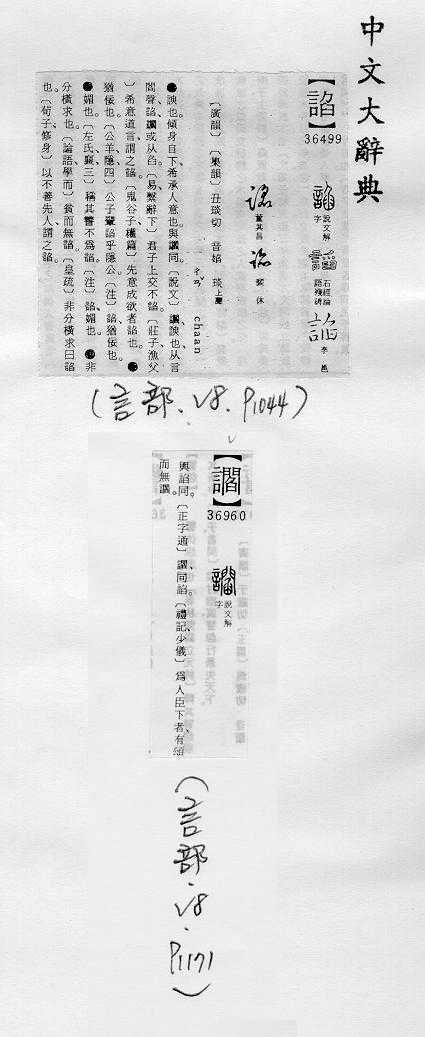 中文大辭典
【諂】
36499
說文解字
石經論語殘碑
李邕
董其昌
裴休
〔廣韻〕〔集韻〕丑琰切 音諂 琰上聲
ㄔㄢˇ chaan
●諛也。傾身自下希承人意也。與讇同。〔說文〕讇、諛也。从言
閻聲。諂、讇或从臽。〔易、繫辭下〕君子上交不諂。〔莊子、漁父
〕希意道言謂之諂。〔鬼谷子、權篇〕先意成欲者諂也。●
猶佞也。〔公羊、隱、四〕公子翬諂乎隱公。〔注〕諂、猶佞也。
●媚也。〔左氏、襄、三〕稱其讐不爲諂。〔注〕諂、媚也。●非
分橫求也。〔論語、學而〕貧而無諂。〔皇疏〕非分橫求曰諂
也。〔荀子、修身〕以不善先人謂之諂。
(言部、V8、P1044)
【讇】
36960
說文解字
與諂同。〔正字通〕讇、同諂。〔禮記、少儀〕爲人臣下者、有頌
而無讇。
(言部、V8、P1171)